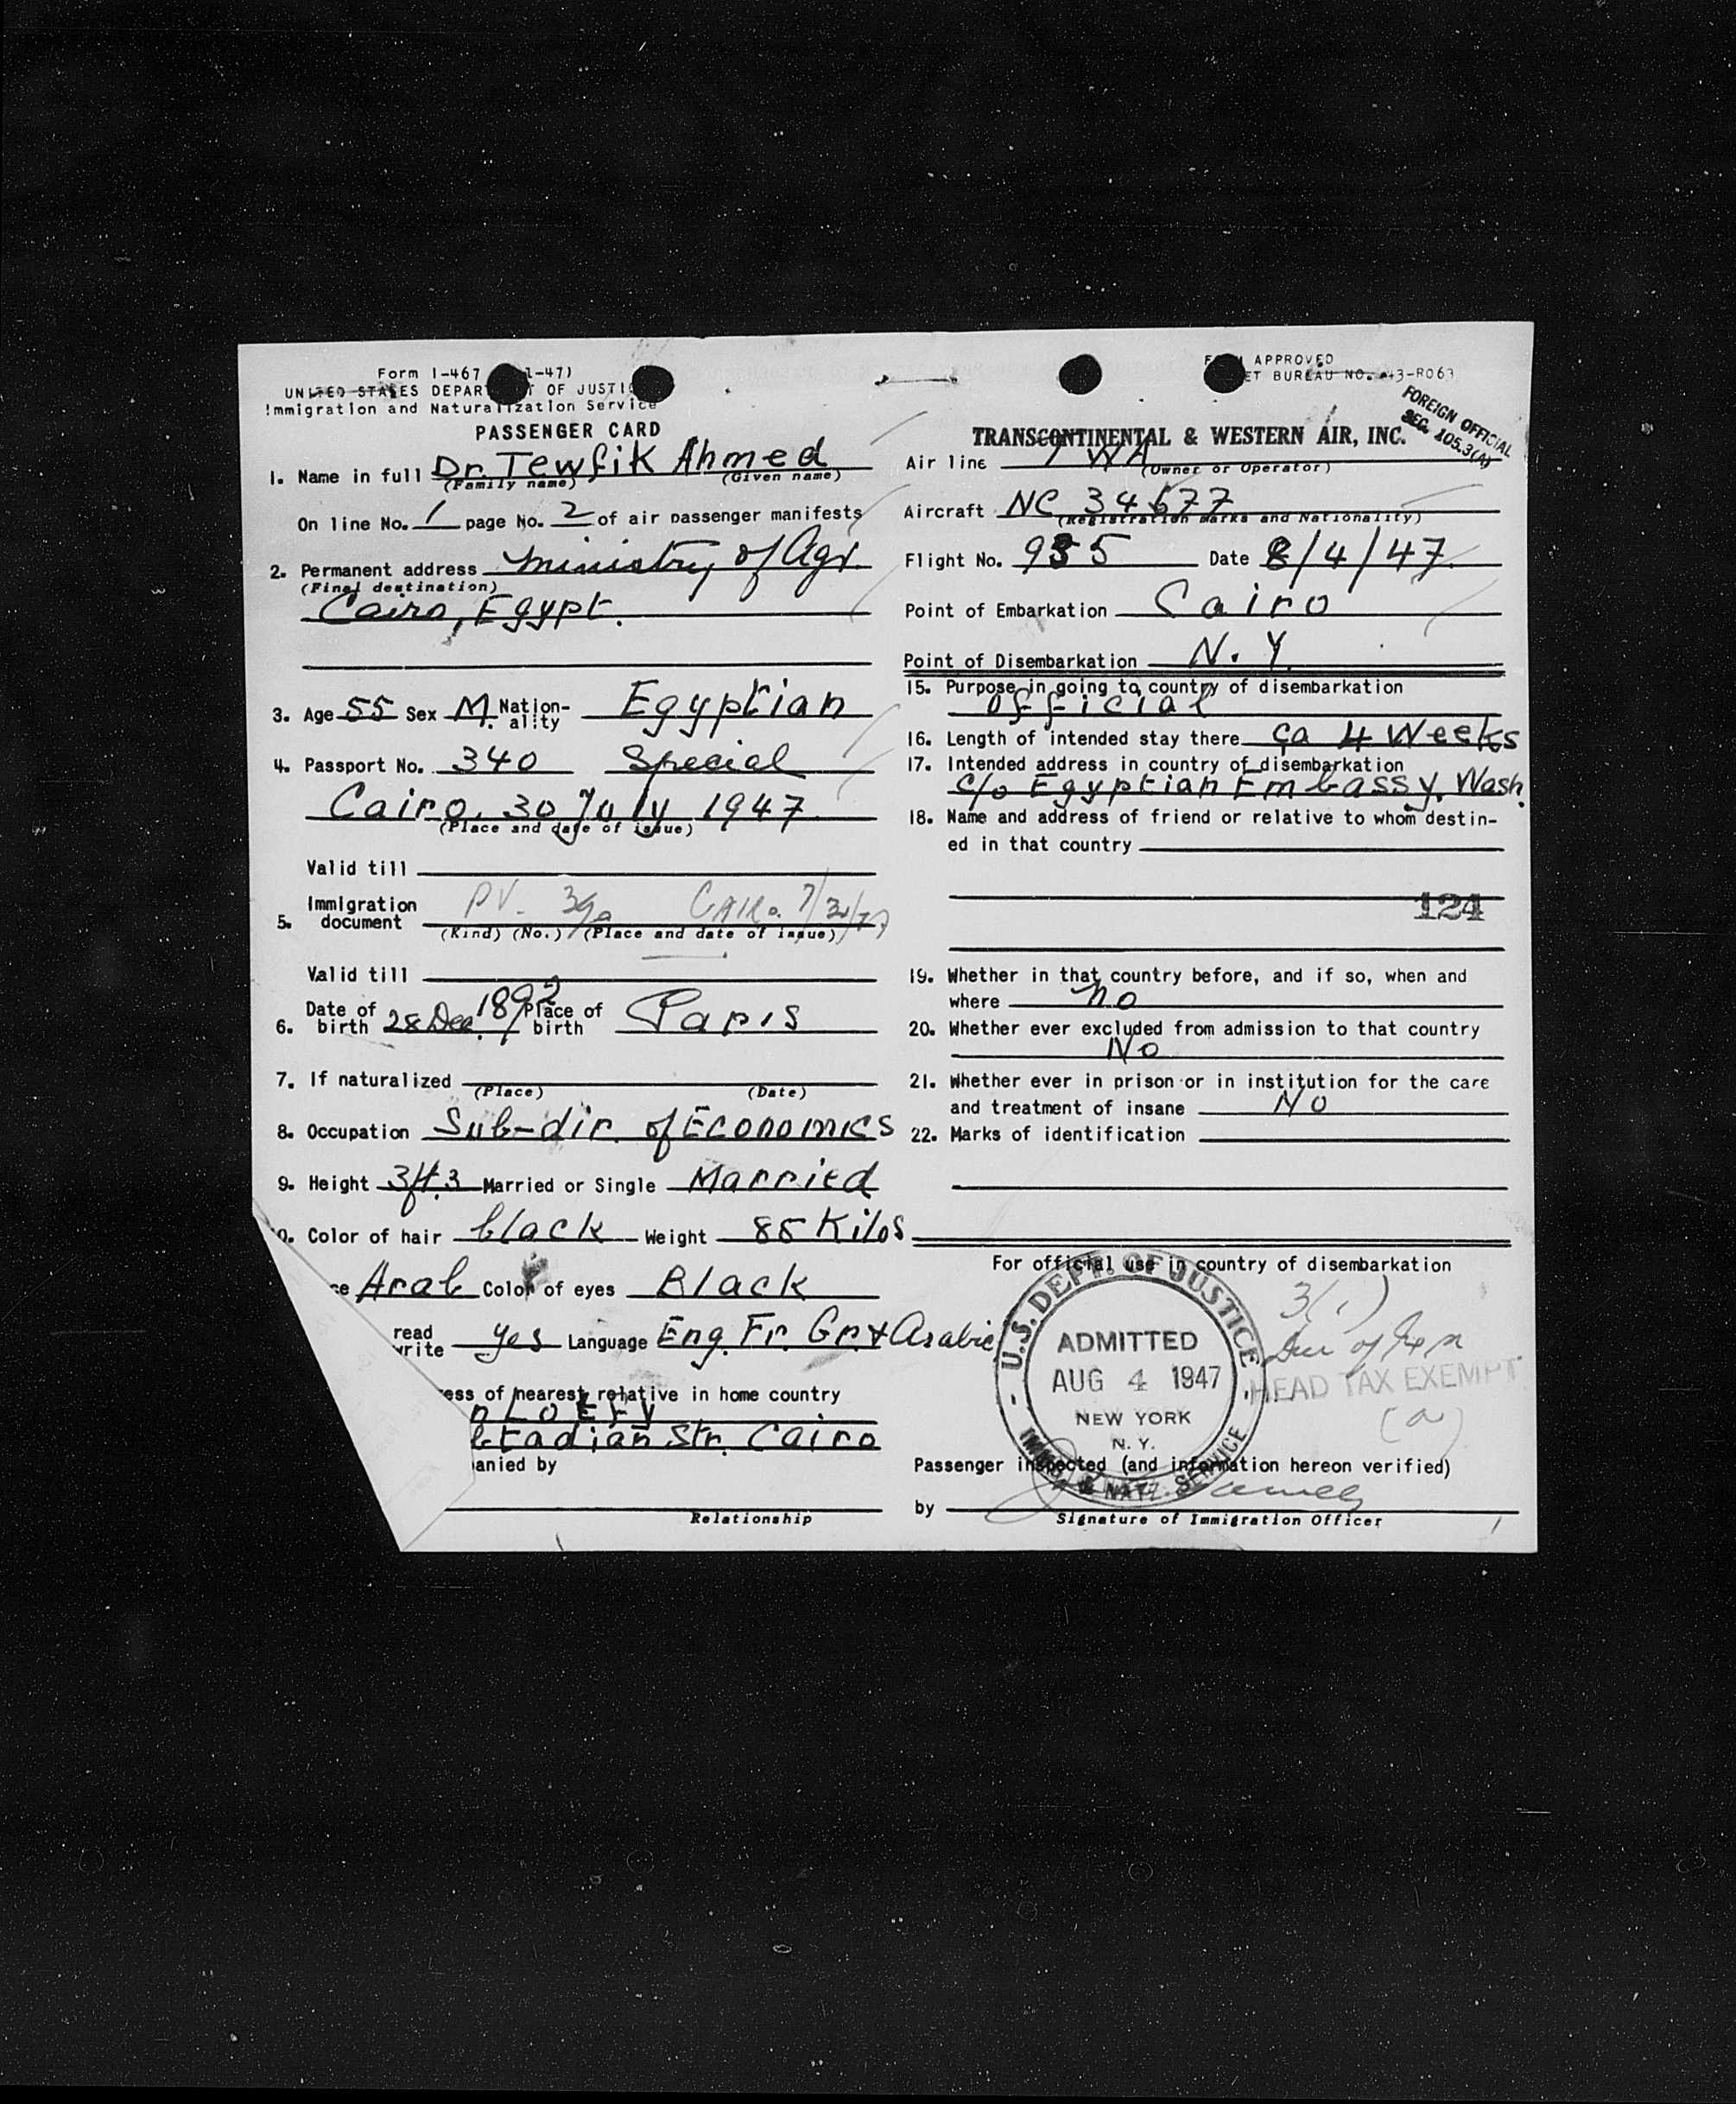 Form I-467 1-47)
UNITED STATES DEPAR T OF JUSTIC
Immigration and Naturalization Service
PASSENGER CARD
1. Name in full Dr. Tewfik Ahmed
(Family name) (Given name)
On line No. 1 page No. 2 of air passenger manifests
2. Permanent address Ministry of Agr.
(Final destination)
Cairo, Egypt.
3. Age 55 Sex M. Nation-ality Egyptian
4. Passport No. 340 Special
Cairo, 30 July 1947
(Place and date of issue)
Valid till
5. Immigration document PV. Cairo
(Kind) (No.) (Place and date of issue)
Valid till
6. Date of birth 28 Dec. 1892 Place of birth Paris
7. If naturalized
(Place) (Date)
8. Occupation Sub-dir. of Economics
9. Height Married or Single Married
0. Color of hair black Weight 85 Kilos
ce Arab Color of eyes Black
read write yes Language Eng. Fr. Gr. & Arabic
ess of nearest relative in home country
n Lotfy
tadian Str. Cairo
anied by
Relationship
APPROVED
ET BUREAU NO. 43-R063
FOREIGN OFFICIAL
SEC. 105.3(A)
TRANSCONTINENTAL & WESTERN AIR, INC.
Air line TWA
(Owner or Operator)
Aircraft NC 34677
(Registration marks and Nationality)
Flight No. 935 Date 8/4/47
Point of Embarkation Cairo
Point of Disembarkation N.Y.
15. Purpose in going to country of disembarkation
Official
16. Length of intended stay there ca 4 Weeks
17. Intended address in country of disembarkation
c/o Egyptian Embassy, Wash.
18. Name and address of friend or relative to whom destin-
ed in that country
124
19. Whether in that country before, and if so, when and
where no
20. Whether ever excluded from admission to that country
No
21. Whether ever in prison or in institution for the care
and treatment of insane No
22. Marks of identification
For official use in country of disembarkation
U.S. DEPT. OF JUSTICE
ADMITTED
AUG 4 1947
NEW YORK
N. Y.
IMMIG. & NATZ. SERVICE
3(1)
HEAD TAX EXEMPT
(a)
Passenger inspected (and information hereon verified)
by
Signature of Immigration Officer